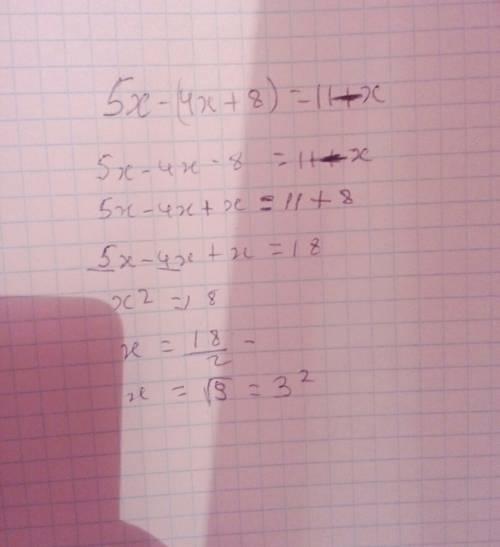 5x-(4x+8)=11-x
5x-4x-8=11-x
5x-4x+x=11+8
5x-4x+x=18
x2=18
x=18/2-
x=√9=3²